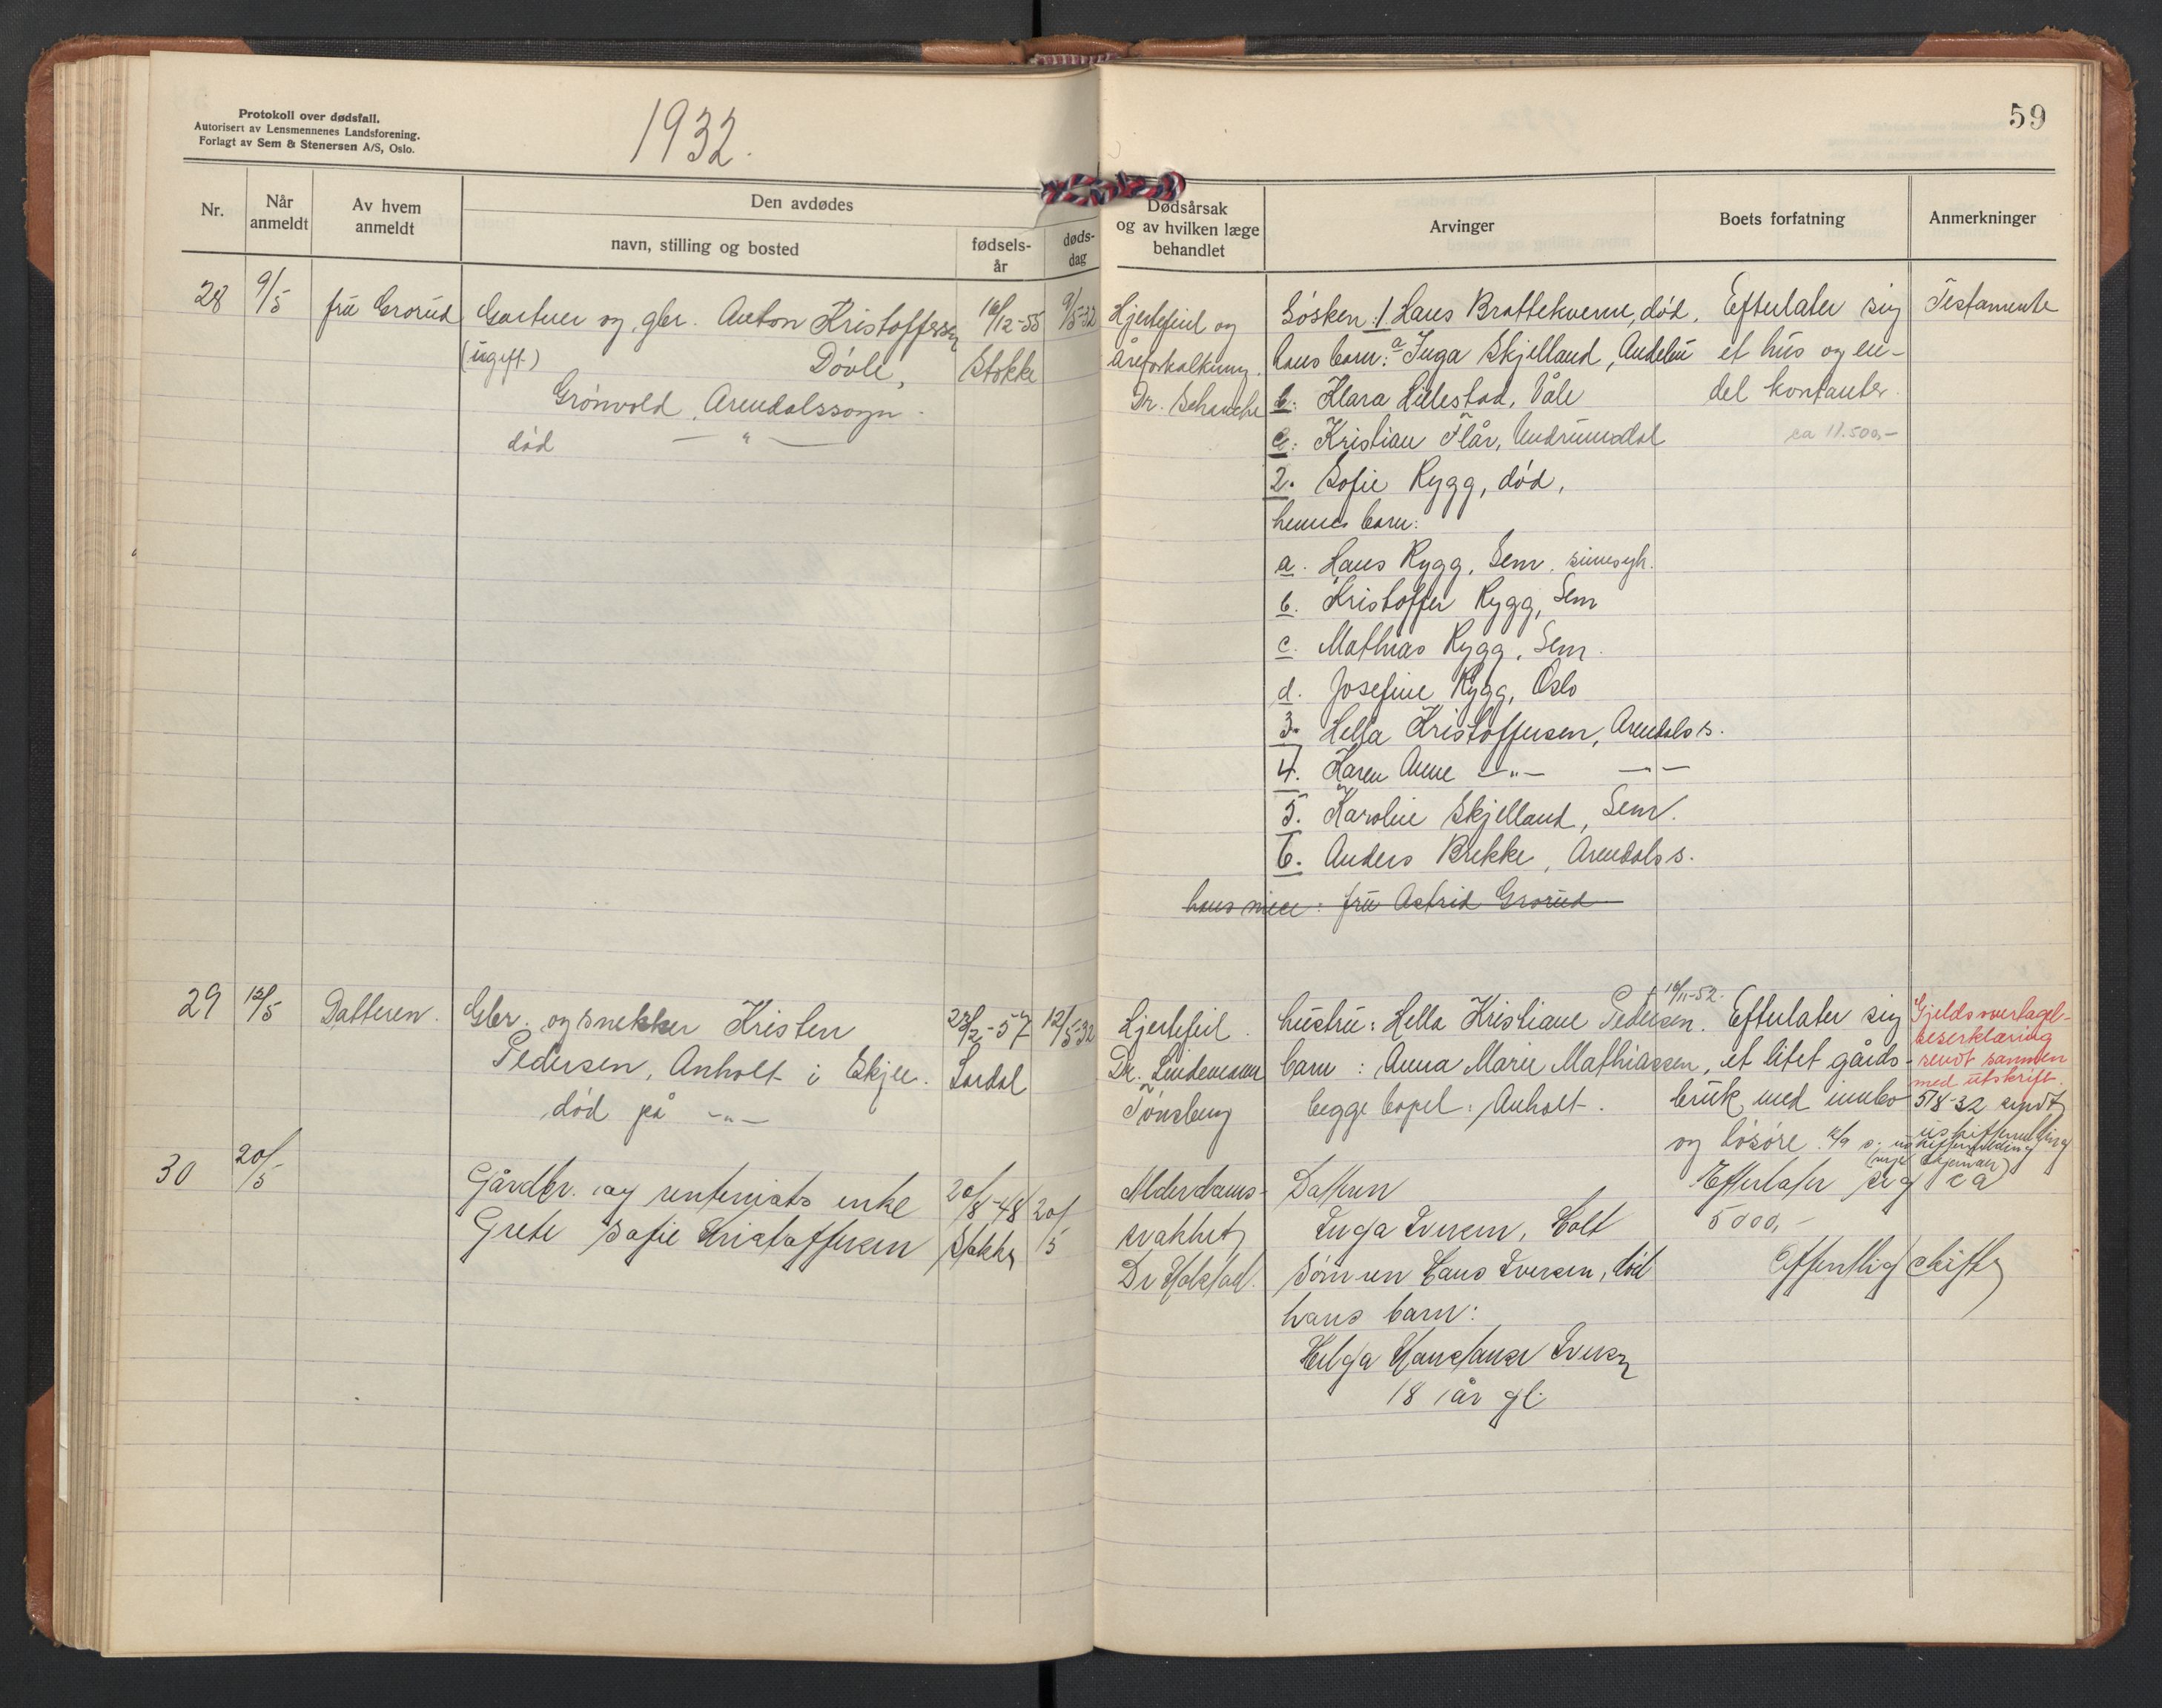 Protokoll over dødsfall.
Autorisert av Lensmennenes Landsforening.
Forlagt av Sem & Stenersen A/S, Oslo.
1932.
59
Nr.
Når anmeldt
Av hvem anmeldt
Den avdødes
navn, stilling og bosted
fødsels-
år
døds-
dag
Dødsårsak
og av hvilken læge
behandlet
Arvinger
Boets forfatning
Anmerkninger
28 9/5 fru Grorud Gartner og gbr. Anton Kristoffersen
(ugift) Døvle,
Grønvold, Arendalssogn.
død — " —
16/12-55
Stokke
9/5-32
Hjertefeil og
åreforkalkning.
Dr. Schanche
Søsken: 1 Hans Brattekverne, død.
hans barn: a Inga Skjelland, Andebu
b: Klara Lillestad, Våle
c: Kristian Flår, Undrumsdal
2. Sofie Rygg, død,
hennes barn:
a. Hans Rygg, Sem, sinnsyk.
b. Kristoffer Rygg, Sem
c. Mathias Rygg, Sem.
d. Josefine Rygg, Oslo
3. Hella Kristoffersen, Arendals s.
4. Karen Anne — " — — " —
5. Karoline Skjelland, Sem.
6. Anders Brekke, Arendals s.
hans niece: fru Astrid Grorud
Efterlater sig
et hus og en-
del kontanter.
ca 11.500,-
Testamente
29 12/5 Datteren. Gbr. og snekker Kristen
Pedersen, Anholt i Skjee.
død på — " —
23/2-57
Lardal
12/5-32
Hjertefeil.
Dr. Lindemann
Tønsberg
† 16/11-52.
hustru: Hella Kristiane Pedersen.
barn: Anna Marie Mathiassen,
begge bopel: Anholt.
Efterlater sig
et litet gårds-
bruk med innbo
og løsøre.
Gjeldsovertagel-
seserklæring
sendt sammen
med utskrift.
5/8-32 sendt
30 20/5
Gårdbr. og rentenists enke
Grete Sofie Kristoffersen
20/8-48
Stokke
20/5
Alderdoms-
svakhet
Dr Halstad.
Datteren
Inga Iversen, Holt
Sønnen Hans Iversen, død
hans barn:
Helga Konstanse Iversen
18 år gl.
Efterlater sig ca
5000,-
Offentlig skifte